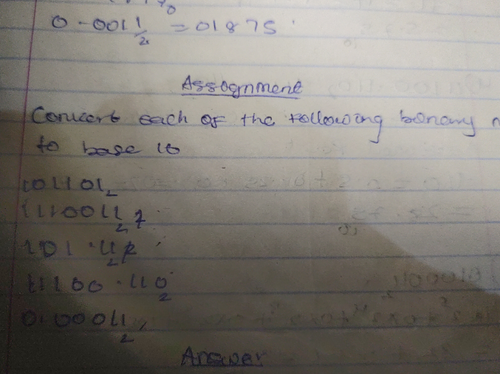 0.0011₂ = 01875
Assignment
Convert each of the following binary n
to base 10
101101₂
1110011₂
101.11₂
11100.110₂
0.00011₂
Answer